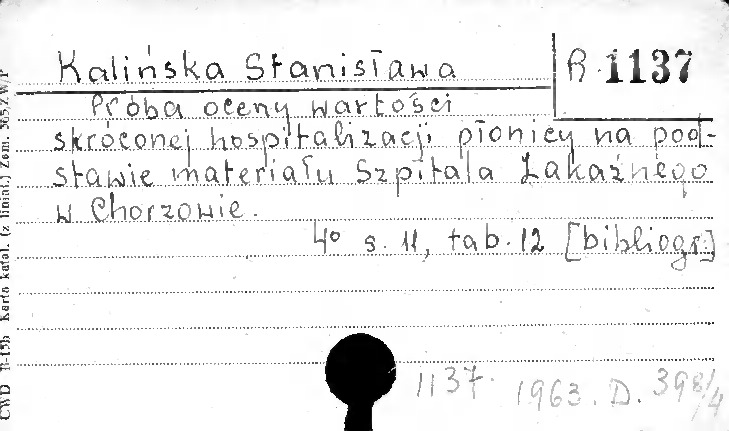 Kalińska Stanisława R. 1137
Próba oceny wartości
skróconej hospitalizacji płonicy na pod-
stawie materiału Szpitala Zakaźnego
w Chorzowie.
4° s. 11, tab. 12 [bibliogr.]
1137. 1963. D. 398/4
CWD D-15b Karta katal. (z liniat.) Zam. 505/ZW/P